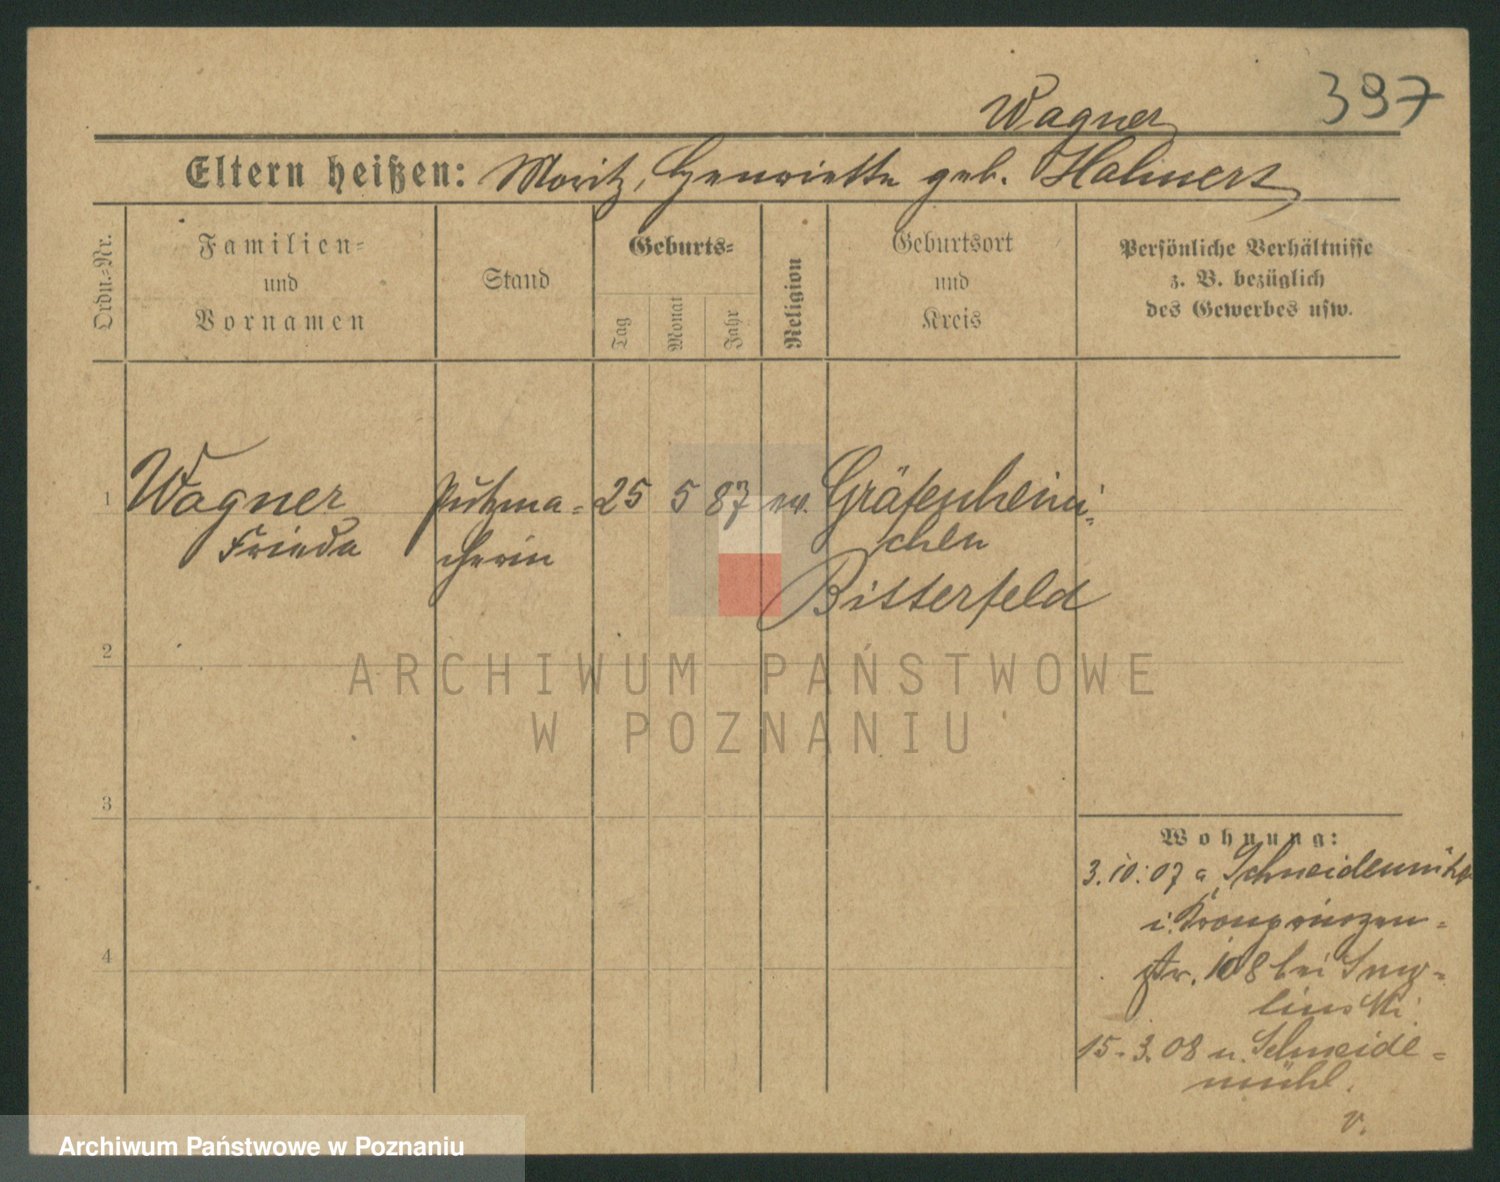 397
Wagner
Eltern heißen: Moritz, Henriette geb.
Ordn.-Nr.
Familien-
und
Vornamen
Stand
Geburts-
Tag
Monat
Jahr
Religion
Geburtsort
und
Kreis
Persönliche Verhältnisse
z. B. bezüglich
des Gewerbes usw.
1 Wagner Putzma- 25 5 87 ev. Gräfenheini-
Frieda cherin chen
Bitterfeld
2
3
4
Wohnung:
3. 10. 07 a Schneidemühl
i. Kronprinzen-
str. 108 bei
15. 3. 08 n. Schneide-
mühl.
v.
ARCHIWUM PAŃSTWOWE
W POZNANIU
Archiwum Państwowe w Poznaniu